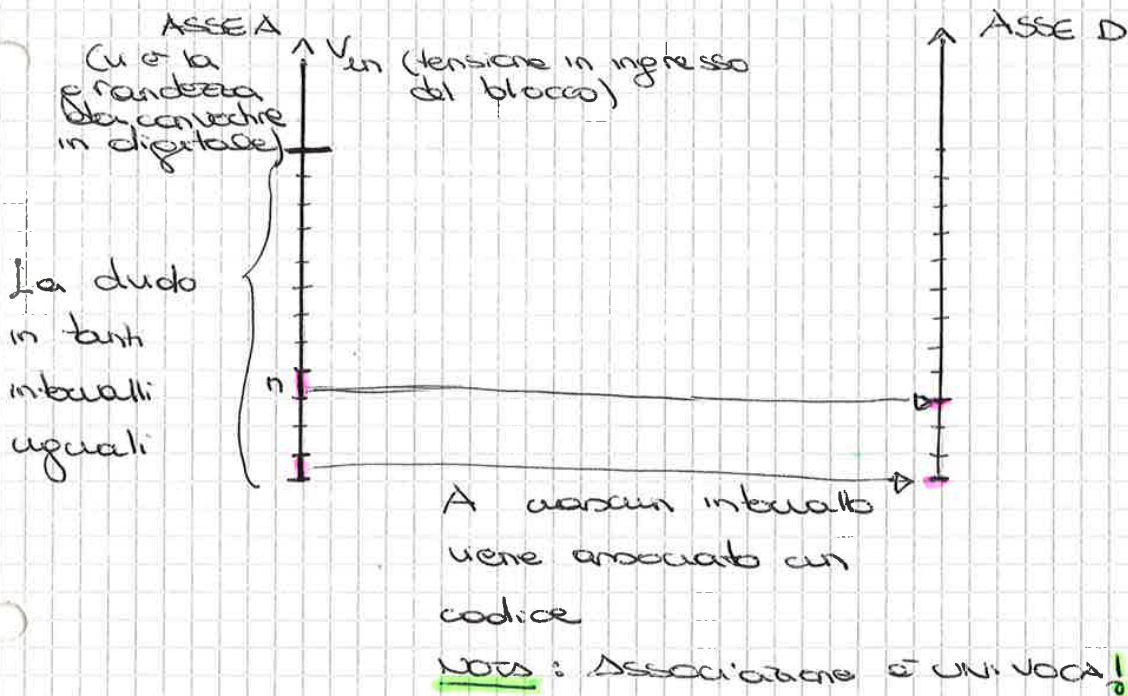 ASSE A
(u è la
grandezza
da convertire
in digitale)
Vin (tensione in ingresso
del blocco)
ASSE D
La divido
in tanti
intervalli
uguali
n
A ciascun intervallo
viene associato un
codice
NOTA: Associazione è UNIVOCA!